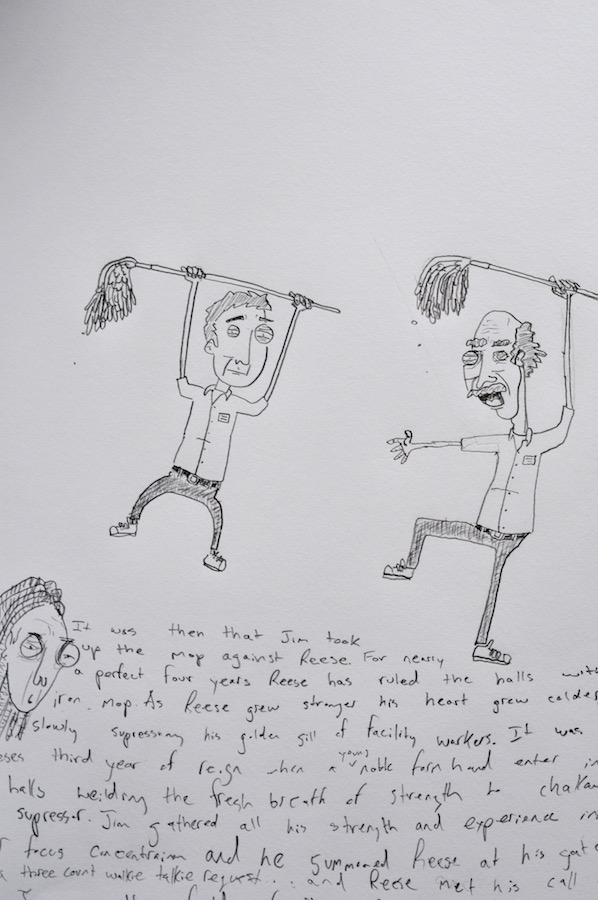 It was then that Jim took
up the mop against Reese. For nearly
a perfect four years Reese has ruled the halls with
iron mop. As Reese grew stronger his heart grew colder
slowly supressing his golden gill of facility workers. It was
eses third year of reign when a young noble farm hand enter in
halls weilding the fresh breath of strength to
supressor. Jim gathered all his strength and experience in
focus concentraion and he summoned Reese at his gate
a three count walkie talkie request... and Reese met his call